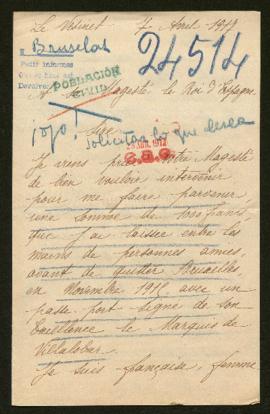 Le Vésinet 7 Avril 1917
Bruselas
24514
Pedir informes
POBLACIÓN
CIVIL
A Sa Majesté le Roi d'Espagne
Sire
¡ojo!
Solicitar lo que desea
Je viens prier Votre Majesté
de bien vouloir intervenir
pour me faire parvenir
une somme de
que j'ai laissée entre les
mains de personnes amies,
avant de quitter Bruxelles,
en Novembre 1915 avec un
passe port signé de son
Excellence le Marquis de
Villalobar.
Je suis française, femme